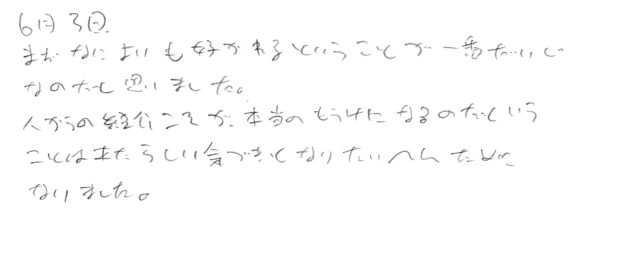 6月3日
まずなによりも好かれるということが一番だいじ
なのだと思いました。
人からの経信こそが、本当のもうけになるのだという
ことはまたらしい気づきとなりたいへんために
なりました。